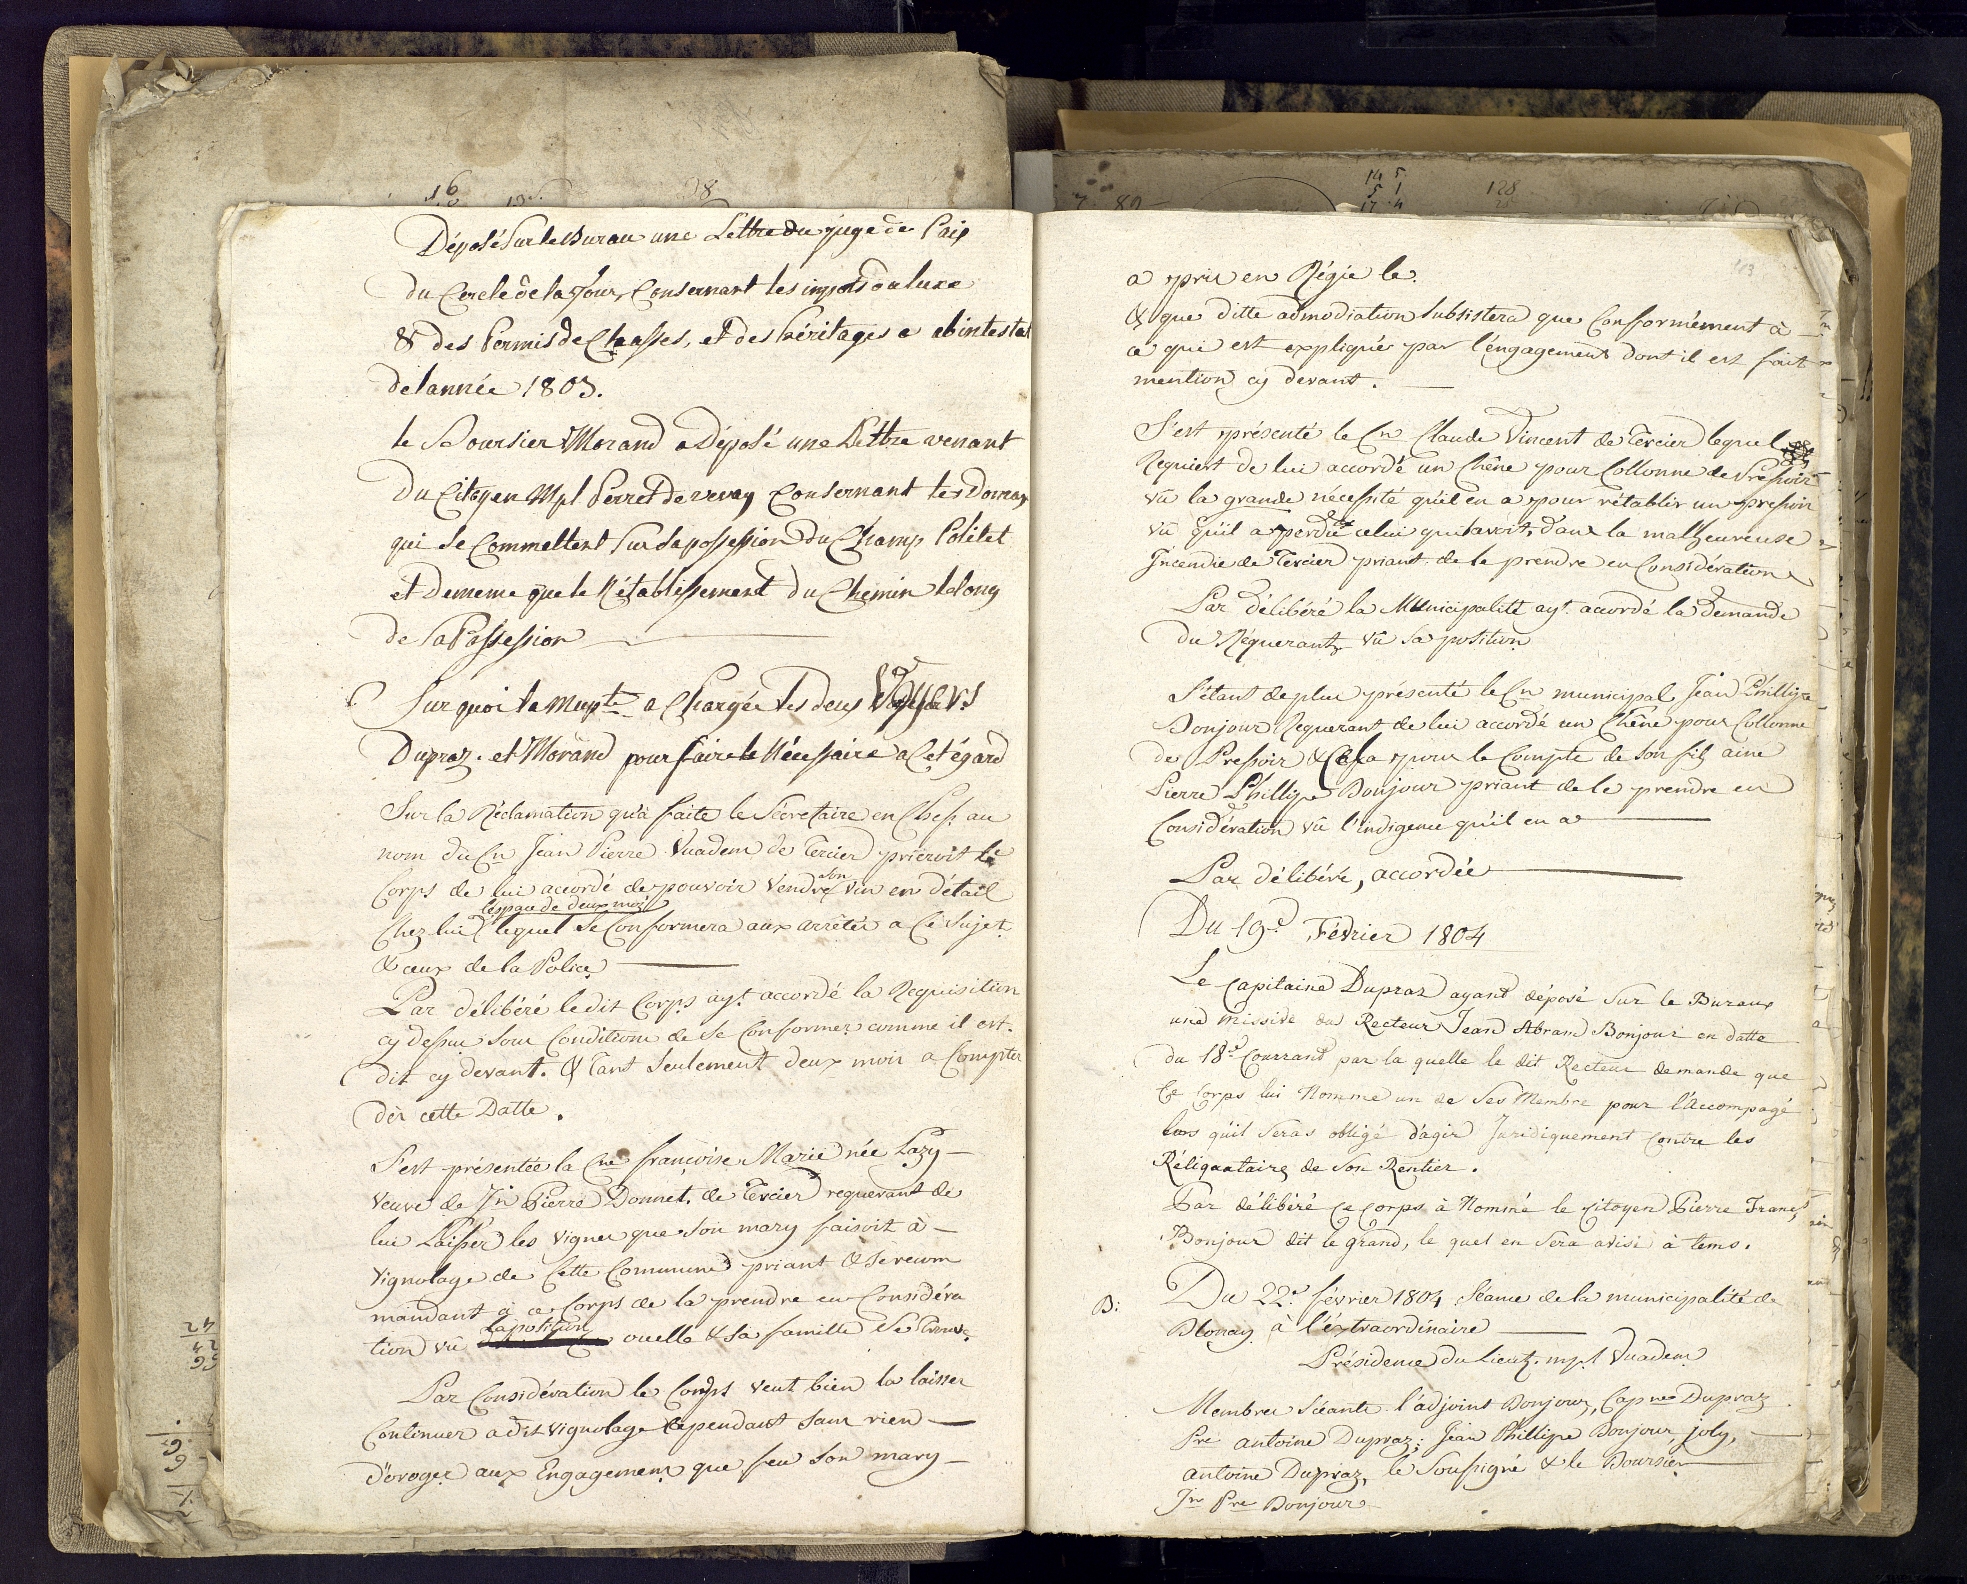 Déposé sur le Bureau une Lettre du juge de Paix
du Cercle de la Tour, Consernant les impots du luxe
& des Permis de Chasses, et des héritages a abintestat
de lannée 1803.
le Boursier Morand a Déposé une Lettre venant
Du Citoyen Mpl Perret de vevay Consernant les Domages
qui se Commettent sur sa possession du Champ Politet
et de meme que le Rétablissement du Chemin le long
de sa Possession
Sur quoi la Mupté a Chargée les deux Voyers
Dupraz. et Morand pour faire le Nécessaire a Cet égard
Sur la Réclamation qu'a faite le Sécretaire en Chef au
nom du Cn Jean Pierre Vuadens de Tercier prieroit le
Corps de lui accordé de pouvoir Vendre son vin en détail
l'espace de deux mois
Chez lui lequel se Conformera aux arrêtés a Ce Sujet
& ceux de la Police
Par délibéré le dit Corps ayt accordé la Requisition
cy dessus sous Conditions de se Conformer comme il est
dit cy devant. & tant seulement deux mois a Compter
dès cette Datte.
S'est présentée la Cne françoise Marie née Lazy
Veuve de Jn Pierre Donnet. de Tercier requerant de
lui Laisser les vignes que son mary faisoit à
Vignolage de Cette Commune priant & se recom
mandant à ce Corps de la prendre en Considéra
tion vu la position ou elle & sa famille se trouve.
Par Considération le Corps veut bien la laisser
Continuer a dit vignolage Cependant sans rien
d'eroger aux Engagemens que feu son mary
113
a pris en Régie le.
& que ditte admodiation subsistera que Conformément à
ce qui est expliqué par l'éngagement dont il est fait
mention cy devant.
S'est présenté le Cn Claude Vincent de Tercier lequel
Requiert de lui accordé un Chêne pour Collonne de Pressoir
vû la grande nécessité qu'il en a pour rétablir un pressoir
vû qu'il a perdu celui qu'il avoit, dans la malheureuse
Incendie de Tercier priant de le prendre en Considération
Par délibéré la Municipalité ayt accordé la demande
du Réquerant vû sa position
S'étant de plus présenté le Cn municipal, Jean Phillipe
Bonjour Requerant de lui accordé un Chêne pour Collonne
de Pressoir & Cela pour le Compte de son fils ainé
Pierre Phillipe Bonjour priant de le prendre en
Considération vû l'indigence qu'il en a
Par délibéré, accordée
Du 19e Février 1804
Le Capitaine Dupraz ayant déposé sur le Bureau
une missive du Recteur Jean Abram Bonjour en datte
du 18e Courrant par la quelle le dit Recteur demande que
Ce Corps lui Nomme un de ses Membre pour l'Accompagé
lors qu'il seras obligé d'agir Juridiquement contre les
Réliquataires de son Rentier.
Par délibéré ce Corps à Nommé le citoyen Pierre Franç
Bonjour dit le grand, le quel en sera avisé à tems.
B:
Du 22e février 1804 Séance de la municipalité de
Blonay à l'éxtraordinaire
Présidence du Lieut. mpl Vuadens
Membres Séants l'adjoint Bonjour, Capne Dupraz
Pre antoine Dupraz; Jean Phillipe Bonjour, joly,
antoine Dupraz, le Soussigné & le Boursier
Jn Pre Bonjour